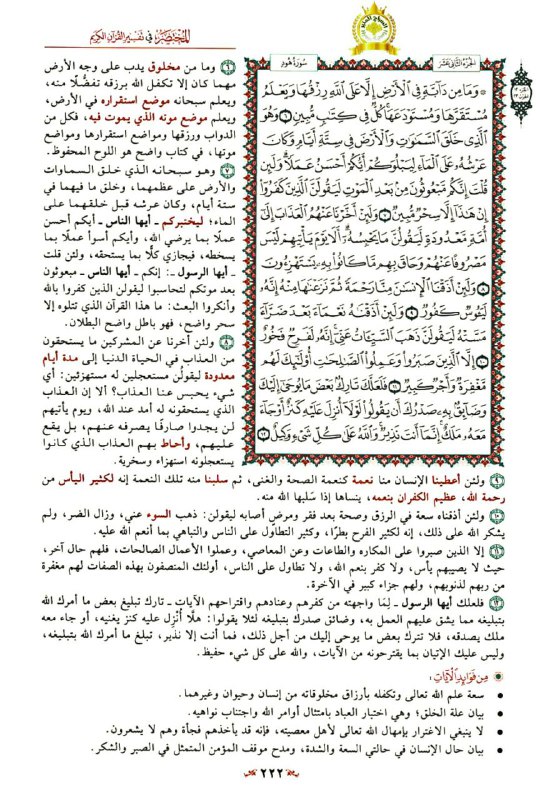 المختصر في تفسير القرآن الكريم
سورة هود
الجزء الثاني عشر
۞ وَمَا مِن دَآبَّةٍ فِي ٱلۡأَرۡضِ إِلَّا عَلَى ٱللَّهِ رِزۡقُهَا وَيَعۡلَمُ
مُسۡتَقَرَّهَا وَمُسۡتَوۡدَعَهَاۚ كُلّٞ فِي كِتَٰبٖ مُّبِينٖ ٦ وَهُوَ
ٱلَّذِي خَلَقَ ٱلسَّمَٰوَٰتِ وَٱلۡأَرۡضَ فِي سِتَّةِ أَيَّامٖ وَكَانَ
عَرۡشُهُۥ عَلَى ٱلۡمَآءِ لِيَبۡلُوَكُمۡ أَيُّكُمۡ أَحۡسَنُ عَمَلٗاۗ وَلَئِن
قُلۡتَ إِنَّكُم مَّبۡعُوثُونَ مِنۢ بَعۡدِ ٱلۡمَوۡتِ لَيَقُولَنَّ ٱلَّذِينَ كَفَرُوٓاْ
إِنۡ هَٰذَآ إِلَّا سِحۡرٞ مُّبِينٞ ٧ وَلَئِنۡ أَخَّرۡنَا عَنۡهُمُ ٱلۡعَذَابَ إِلَىٰٓ
أُمَّةٖ مَّعۡدُودَةٖ لَّيَقُولُنَّ مَا يَحۡبِسُهُۥٓۗ أَلَا يَوۡمَ يَأۡتِيهِمۡ لَيۡسَ
مَصۡرُوفًا عَنۡهُمۡ وَحَاقَ بِهِم مَّا كَانُواْ بِهِۦ يَسۡتَهۡزِءُونَ
٨ وَلَئِنۡ أَذَقۡنَا ٱلۡإِنسَٰنَ مِنَّا رَحۡمَةٗ ثُمَّ نَزَعۡنَٰهَا مِنۡهُ إِنَّهُۥ
لَيَـُٔوسٞ كَفُورٞ ٩ وَلَئِنۡ أَذَقۡنَٰهُ نَعۡمَآءَ بَعۡدَ ضَرَّآءَ
مَسَّتۡهُ لَيَقُولَنَّ ذَهَبَ ٱلسَّيِّـَٔاتُ عَنِّيٓۚ إِنَّهُۥ لَفَرِحٞ فَخُورٌ
١٠ إِلَّا ٱلَّذِينَ صَبَرُواْ وَعَمِلُواْ ٱلصَّٰلِحَٰتِ أُوْلَٰٓئِكَ لَهُم
مَّغۡفِرَةٞ وَأَجۡرٞ كَبِيرٞ ١١ فَلَعَلَّكَ تَارِكُۢ بَعۡضَ مَا يُوحَىٰٓ إِلَيۡكَ
وَضَآئِقُۢ بِهِۦ صَدۡرُكَ أَن يَقُولُواْ لَوۡلَآ أُنزِلَ عَلَيۡهِ كَنزٌ أَوۡ جَآءَ
مَعَهُۥ مَلَكٌۚ إِنَّمَآ أَنتَ نَذِيرٞۚ وَٱللَّهُ عَلَىٰ كُلِّ شَيۡءٖ وَكِيلٌ ١٢
٦ وما من مخلوق يدب على وجه الأرض
مهما كان إلا تكفل الله برزقه تفضُّلًا منه،
ويعلم سبحانه موضع استقراره في الأرض،
ويعلم موضع موته الذي يموت فيه، فكل من
الدواب ورزقها ومواضع استقرارها ومواضع
موتها، في كتاب واضح هو اللوح المحفوظ.
٧ وهو سبحانه الذي خلق السماوات
والأرض على عظمهما، وخلق ما فيهما في
ستة أيام، وكان عرشه قبل خلقهما على
الماء؛ ليختبركم - أيها الناس - أيكم أحسن
عملًا بما يرضي الله، وأيكم أسوأ عملًا بما
يسخطه، فيجازي كلًّا بما يستحقه، ولئن قلت
- أيها الرسول -: إنكم - أيها الناس - مبعوثون
بعد موتكم لتحاسبوا ليقولن الذين كفروا بالله
وأنكروا البعث: ما هذا القرآن الذي تتلوه إلا
سحر واضح، فهو باطل واضح البطلان.
٨ ولئن أخرنا عن المشركين ما يستحقون
من العذاب في الحياة الدنيا إلى مدة أيام
معدودة ليقولُن مستعجلين له مستهزئين: أي
شيء يحبس عنا العذاب؟ ألا إن العذاب
الذي يستحقونه له أمد عند الله، ويوم يأتيهم
لن يجدوا صارفًا يصرفه عنهم، بل يقع
عليهم، وأحاط بهم العذاب الذي كانوا
يستعجلونه استهزاء وسخرية.
٩ ولئن أعطينا الإنسان منا نعمة كنعمة الصحة والغنى، ثم سلبنا منه تلك النعمة إنه لكثير اليأس من
رحمة الله، عظيم الكفران بنعمه، ينساها إذا سَلَبها الله منه.
١٠ ولئن أذقناه سعة في الرزق وصحة بعد فقر ومرض أصابه ليقولن: ذهب السوء عني، وزال الضر، ولم
يشكر الله على ذلك، إنه لكثير الفرح بطرًا، وكثير التطاول على الناس والتباهي بما أنعم الله عليه.
١١ إلا الذين صبروا على المكاره والطاعات وعن المعاصي، وعملوا الأعمال الصالحات، فلهم حال آخر،
حيث لا يصيبهم يأس، ولا كفر بنعم الله، ولا تطاول على الناس، أولئك المتصفون بهذه الصفات لهم مغفرة
من ربهم لذنوبهم، ولهم جزاء كبير في الآخرة.
١٢ فلعلك أيها الرسول - لِمَا واجهته من كفرهم وعنادهم واقتراحهم الآيات - تارك تبليغ بعض ما أمرك الله
بتبليغه مما يشق عليهم العمل به، وضائق صدرك بتبليغه لئلا يقولوا: هلَّا أُنْزِل عليه كنز يغنيه، أو جاء معه
ملك يصدقه، فلا تترك بعض ما يوحى إليك من أجل ذلك، فما أنت إلا نذير، تبلغ ما أمرك الله بتبليغه،
وليس عليك الإتيان بما يقترحونه من الآيات، والله على كل شيء حفيظ.
من فوائد الآيات:
• سعة علم الله تعالى وتكفله بأرزاق مخلوقاته من إنسان وحيوان وغيرهما.
• بيان علة الخلق؛ وهي اختبار العباد بامتثال أوامر الله واجتناب نواهيه.
• لا ينبغي الاغترار بإمهال الله تعالى لأهل معصيته، فإنه قد يأخذهم فجأة وهم لا يشعرون.
• بيان حال الإنسان في حالتي السعة والشدة، ومدح موقف المؤمن المتمثل في الصبر والشكر.
٢٢٢